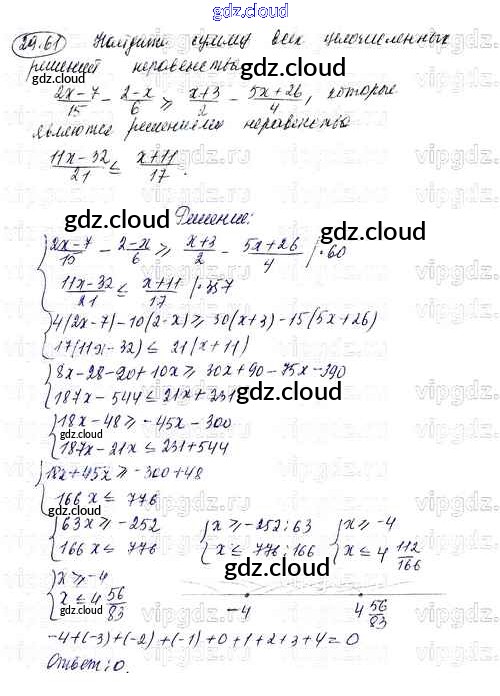 gdz.cloud
24.61 Найдите сумму всех целочисленных
решений неравенства
gdz.cloud
(2x-7)/15 - (2-x)/6 ≥ (x+3)/2 - (5x+26)/4, которые
являются решениями неравенства
(11x-32)/21 ≤ (x+11)/17.
gdz.cloud gdz.cloud
Решение:
{ (2x-7)/15 - (2-x)/6 ≥ (x+3)/2 - (5x+26)/4 /·60
gdz.cloud
(11x-32)/21 ≤ (x+11)/17 /·357
{ 4(2x-7)-10(2-x) ≥ 30(x+3)-15(5x+26)
17(11x-32) ≤ 21(x+11)
{ 8x-28-20+10x ≥ 30x+90-75x-390
187x-544 ≤ 21x+231
gdz.cloud
{ 18x-48 ≥ -45x-300
gdz.cloud
187x-21x ≤ 231+544
{ 18x+45x ≥ -300+48
166x ≤ 776
gdz.cloud
{ 63x ≥ -252 { x ≥ -252:63 { x ≥ -4
166x ≤ 776 { x ≤ 776:166 { x ≤ 4 112/166
gdz.cloud
{ x ≥ -4
gdz.cloud
x ≤ 4 56/83 -4 4 56/83
-4+(-3)+(-2)+(-1)+0+1+2+3+4=0
gdz.cloud
Ответ: 0.